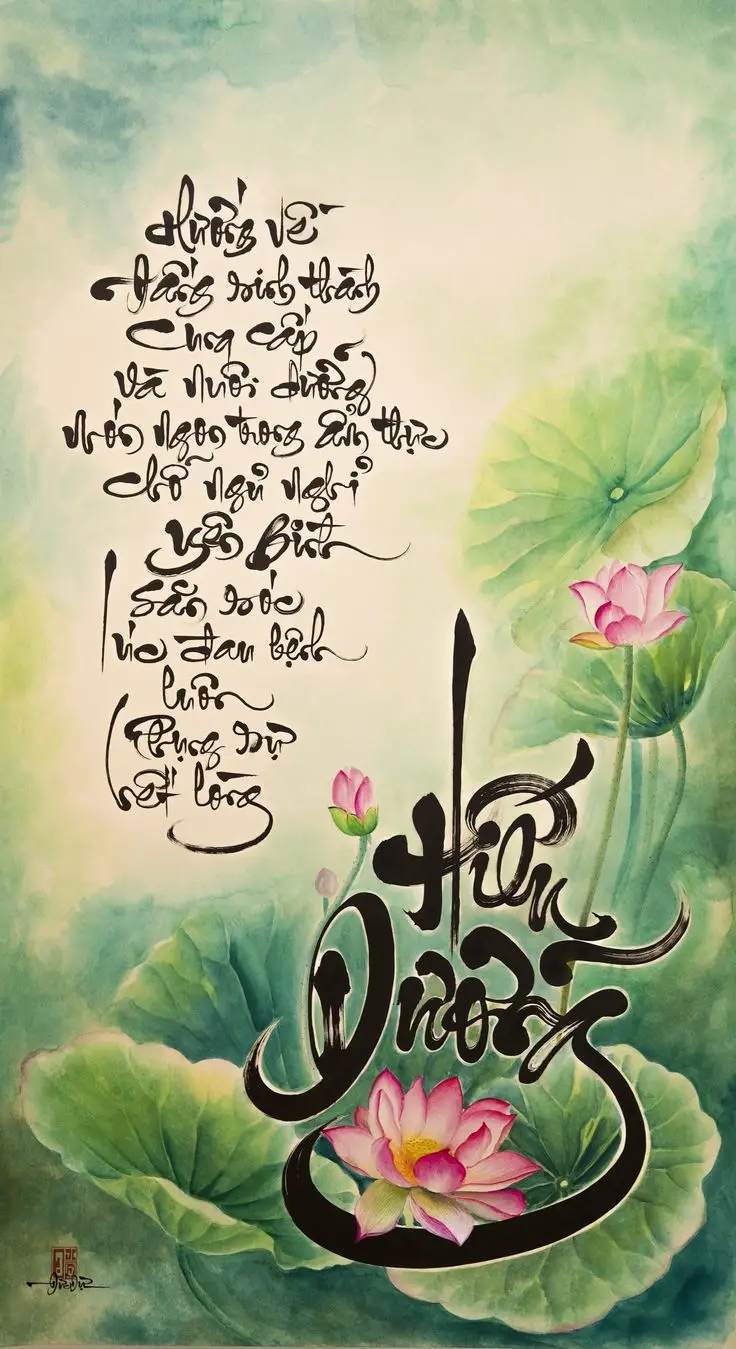 Hướng về
Đấng sinh thành
Cung cấp
Và nuôi dưỡng
Món ngon trong ẩm thực
Chỗ ngủ nghỉ
Yên Bình
Săn sóc
lúc đau bệnh
luôn
Phụng sự
hết lòng
Hiếu
Dưỡng